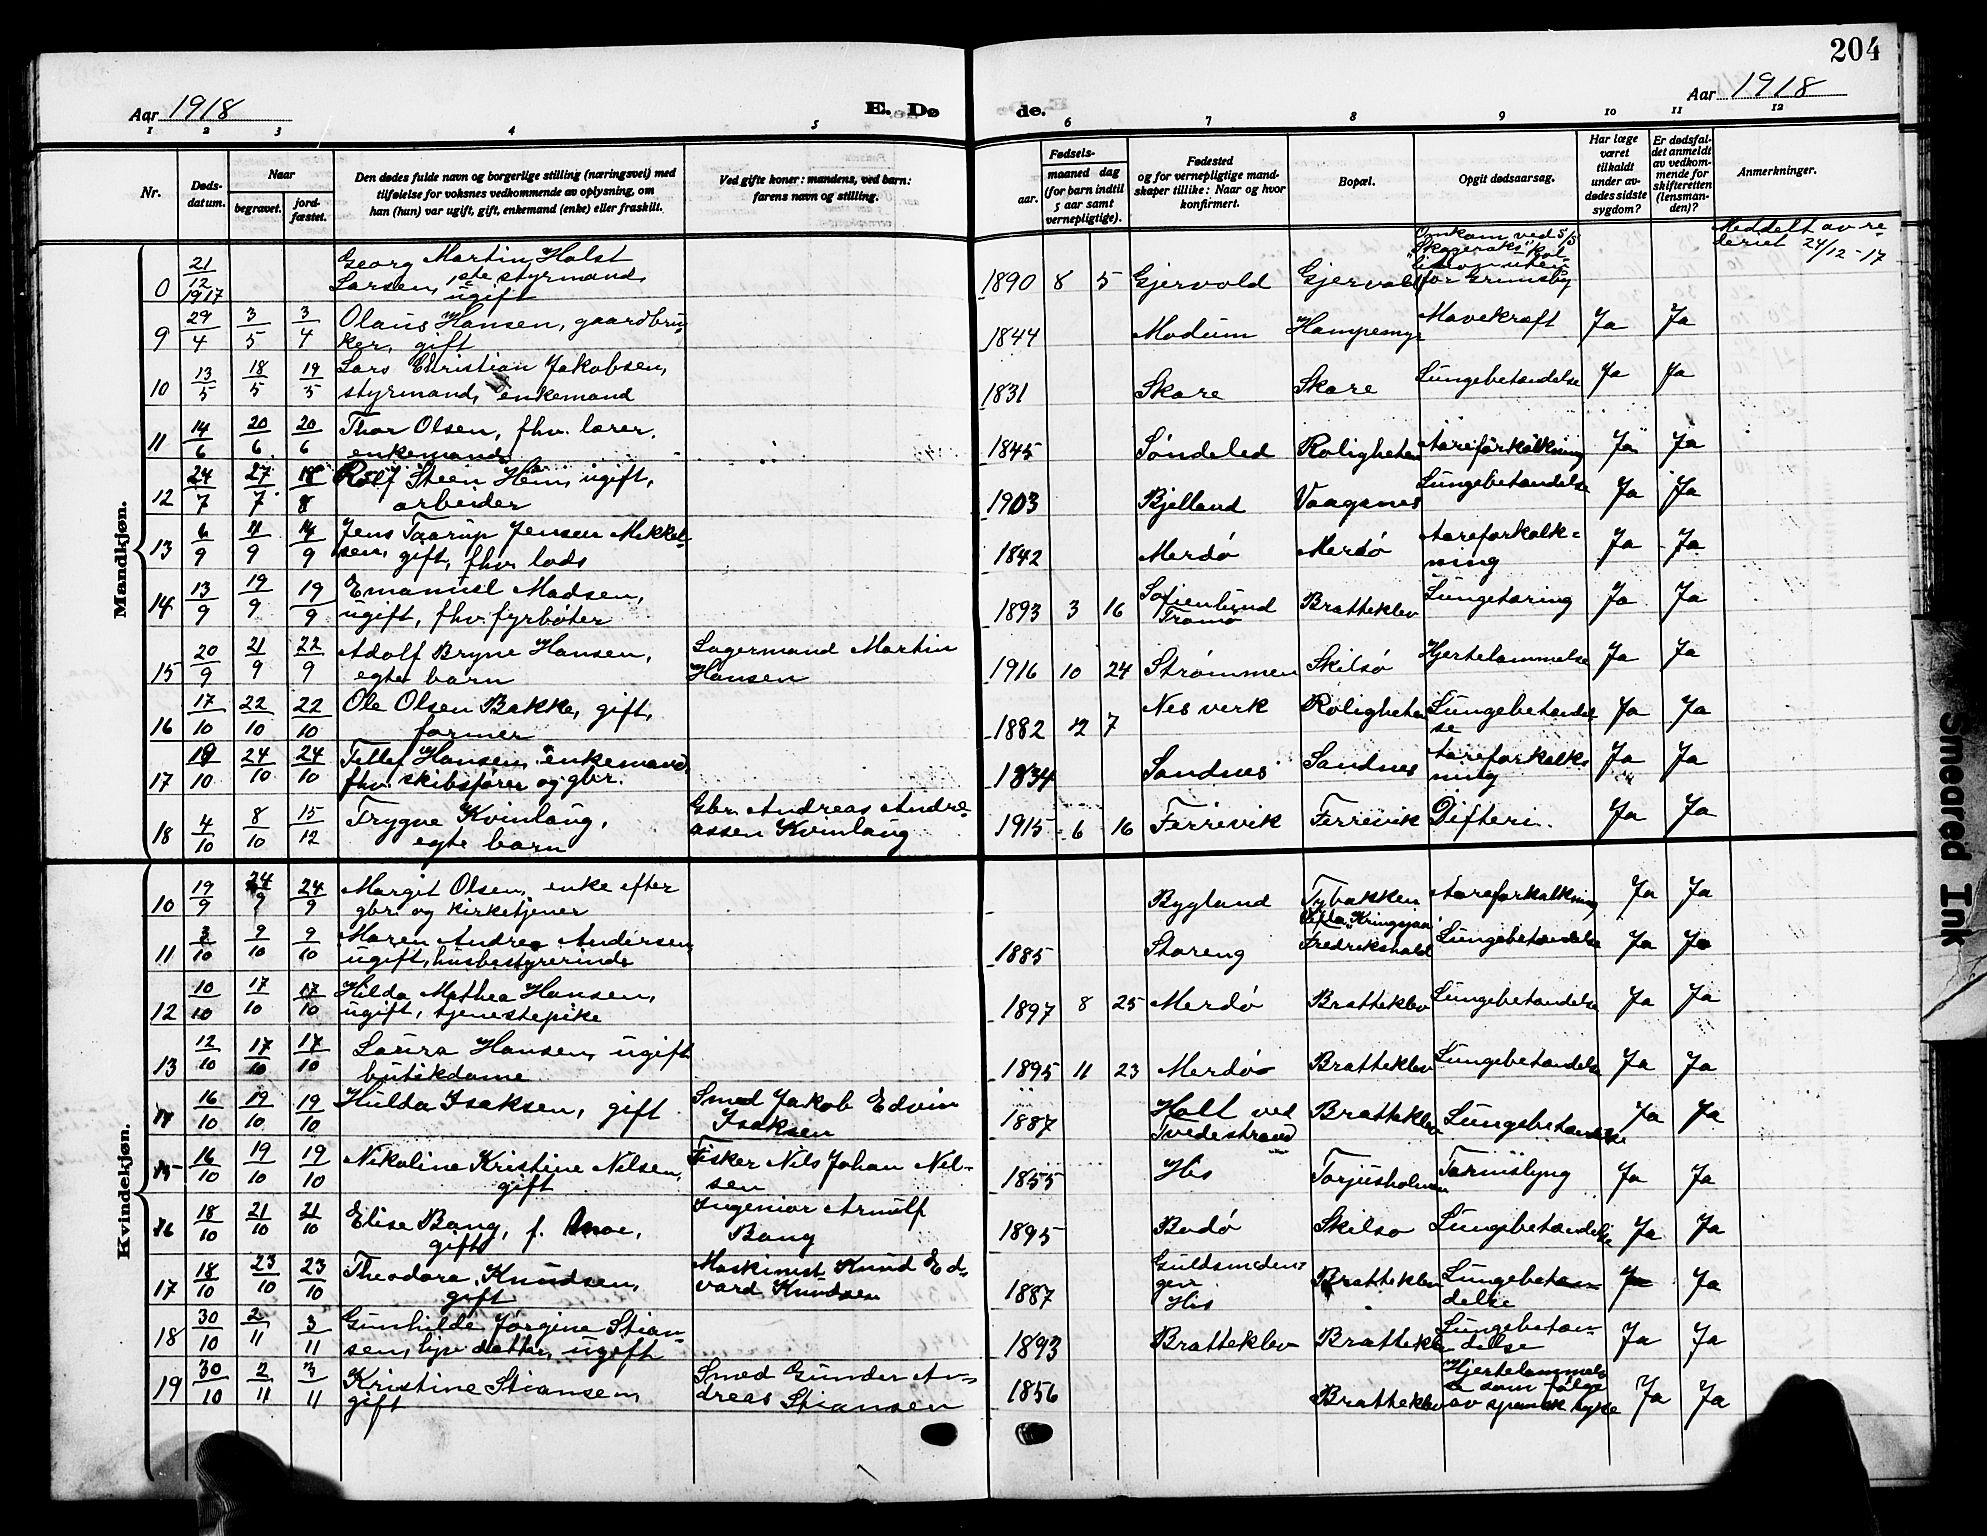 204
Aar 1918
E. Dø
de.
Aar 1918
1 2 3 4 5 6 7 8 9 10 11 12
Nr.
Døds-
datum.
Naar
begravet.
jord-
fæstet.
Den dødes fulde navn og borgerlige stilling (næringsvei) med
tilføielse for voksnes vedkommende av oplysning, om
han (hun) var ugift, gift, enkemand (enke) eller fraskilt.
Ved gifte koner: mandens, ved barn:
farens navn og stilling.
Fødsels-
aar.
maaned dag
(for barn indtil
5 aar samt
vernepligtige).
Fødested
og for vernepligtige mand-
skaper tillike: Naar og hvor
konfirmert.
Bopæl.
Opgit dødsaarsag.
Har læge
været
tilkaldt
under av-
dødes sidste
sygdom?
Er dødsfal-
det anmeldt
av vedkom-
mende for
skifteretten
(lensman-
den)?
Anmerkninger.
Mandkjøn.
0 21/12 1917 Georg Martin Holst
Larsen, 1ste styrmand,
ugift
1890 8 5 Gjervold Gjervold
Omkom ved 5/5
"Skageraks" kol-
lision uten-
for Grimsby
Meddelt av re-
deriet 24/12-17
9 29/4 3/5 3/4 Olaus Hansen, gaardbru-
ker, gift
1844 Modum Hampemyr Mavekræft Ja Ja
10 13/5 18/5 19/5 Lars Christian Jakobsen,
styrmand, enkemand
1831 Skare Skare Lungebetændelse Ja Ja
11 14/6 20/6 20/6 Thor Olsen, fhv. lærer,
enkemand
1845 Søndeled Roligheten Aareforkalkning Ja Ja
12 24/7 27/7 18/8 Rolf Steen Hem, ugift,
arbeider
1903 Bjelland Vaagsnes Lungebetændelse Ja Ja
13 6/9 11/9 14/9 Jens Taarup Jensen Mikkel-
sen, gift, fhv. lods
1842 Merdø Merdø Aareforkalk-
ning Ja Ja
14 13/9 19/9 19/9 Emanuel Madsen,
ugift, fhv. fyrbøter
1893 3 16 Sofienlund
Tromø Bratteklev Lungetæring Ja Ja
15 20/9 21/9 22/9 Adolf Bryne Hansen,
egte barn
Lagermand Martin
Hansen
1916 10 24 Strømmen Skilsø Hjertelammelse Ja Ja
16 17/10 22/10 22/10 Ole Olsen Bakke, gift,
former
1882 12 7 Nes verk Roligheten Lungebetændel-
se Ja Ja
17 19/10 24/10 24/10 Tellef Hansen, enkemand,
fhv. skibsfører og gbr.
1834 Sandnes Sandnes Aareforkalk-
ning Ja Ja
18 4/10 8/10 15/12 Trygve Kvinlaug,
egte barn
Gbr. Andreas Andre-
assen Kvinlaug
1915 6 16 Færevik Færevik Difteri. Ja Ja
Kvindekjøn.
10 19/9 24/9 24/9 Margit Olsen, enke efter
gbr. og kirketjener
Bygland Tybakken Aareforkalkning Ja Ja
11 3/10 9/10 9/10 Maren Andrea Andersen,
ugift, husbestyrerinde
1885 Stareng
Kringsjaa
Fredrikshald Lungebetændelse Ja Ja
12 10/10 17/10 17/10 Hilda Mathea Hansen,
ugift, tjenestepike
1897 8 25 Merdø Bratteklev Lungebetændelse Ja Ja
13 12/10 17/10 17/10 Laura Hansen, ugift
butikdame
1895 11 23 Merdø Bratteklev Lungebetændelse Ja Ja
14 16/10 19/10 19/10 Hulda Isaksen, gift
Smed Jakob Edvin
Isaksen
1887 Holt ved
Tvedestrand Bratteklev Lungebetændelse Ja Ja
15 16/10 19/10 19/10 Nikoline Kristine Nilsen,
gift
Fisker Nils Johan Nil-
sen
1855 His Torjusholmen Tarmslyng Ja Ja
16 18/10 21/10 21/10 Elise Bang, f. Moe,
gift
Ingeniør Arnulf
Bang
1895 Bodø Skilsø Lungebetændelse Ja Ja
17 18/10 23/10 23/10 Theodora Knudsen,
gift
Maskinist Knud Ed-
vard Knudsen
1887 Guldsmeden-
gen
His Bratteklev Lungebetæn-
delse Ja Ja
18 30/10 2/11 3/11 Gunhilde Jørgine Stian-
sen, hjv. datter, ugift
1893 Bratteklev Bratteklev Lungebetæn-
delse Ja Ja
19 30/10 2/11 3/11 Kristine Stiansen,
gift
Smed Gunder An-
dreas Stiansen
1856 Bratteklev Hjertelammel-
se som følge
av spansk syke Ja Ja
Smeared Ink